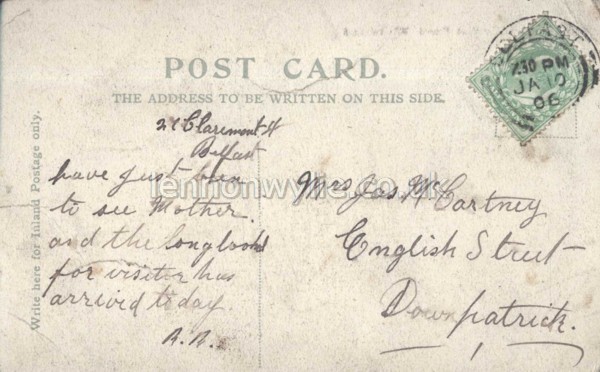 POST CARD.
THE ADDRESS TO BE WRITTEN ON THIS SIDE.
Write here for Inland Postage only.
BELFAST
7.30 PM
JA 10
06
21 Claremont St
Belfast
have just been
to see Mother.
and the long looked
for visiter has
arrived today.
A.R.
Mrs Jas McCartney
English Street
Downpatrick.
lennonwylie.co.uk